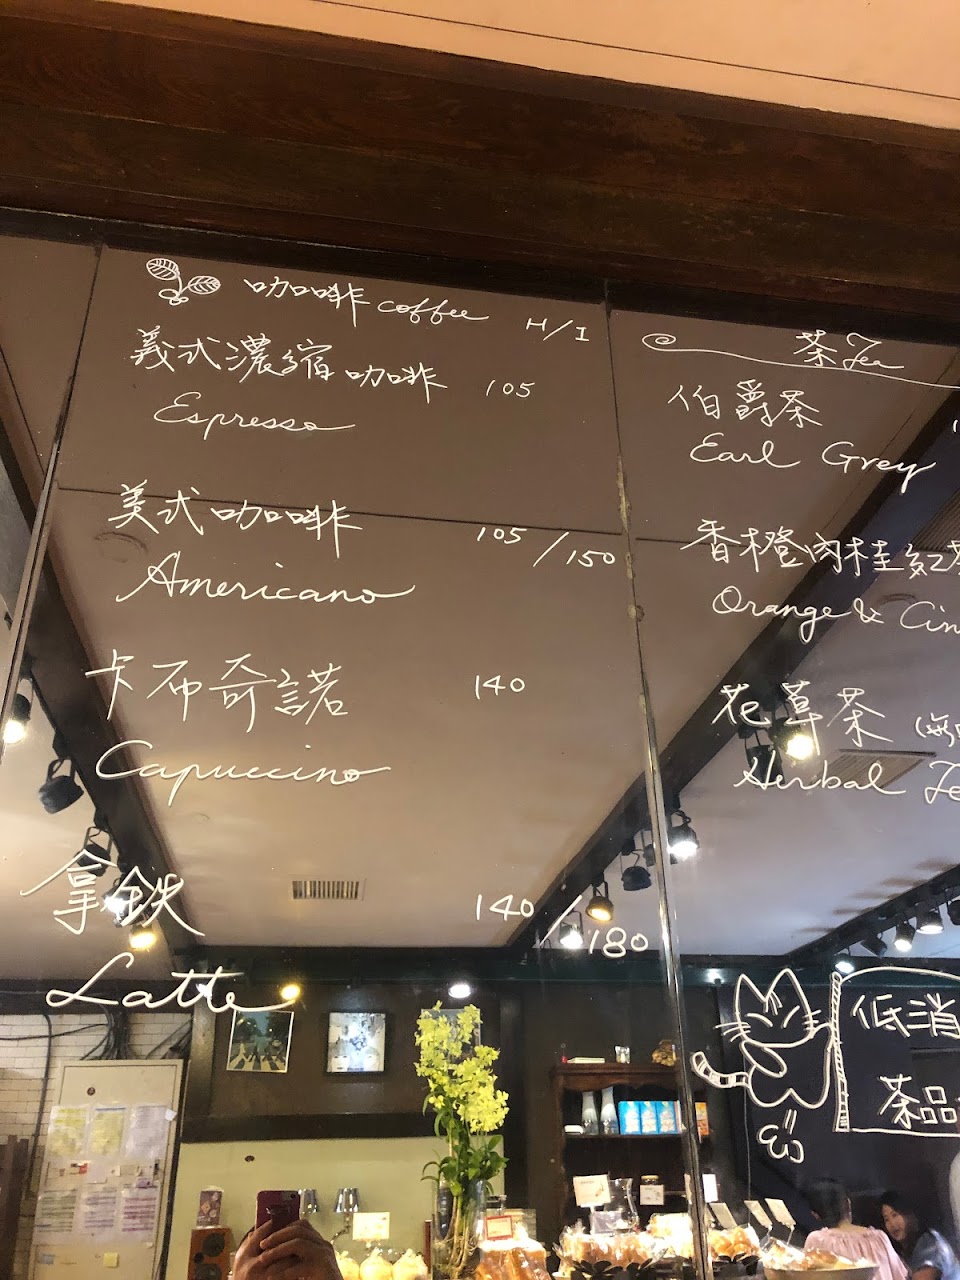 咖啡 coffee H/I
義式濃縮咖啡 105
Espresso
美式咖啡 105/150
Americano
卡布奇諾 140
Capuccino
拿鐵 140/180
Latte
茶 Tea
伯爵茶
Earl Grey
香橙肉桂紅茶
Orange & Cin
花草茶
Herbal Te
低消
茶品